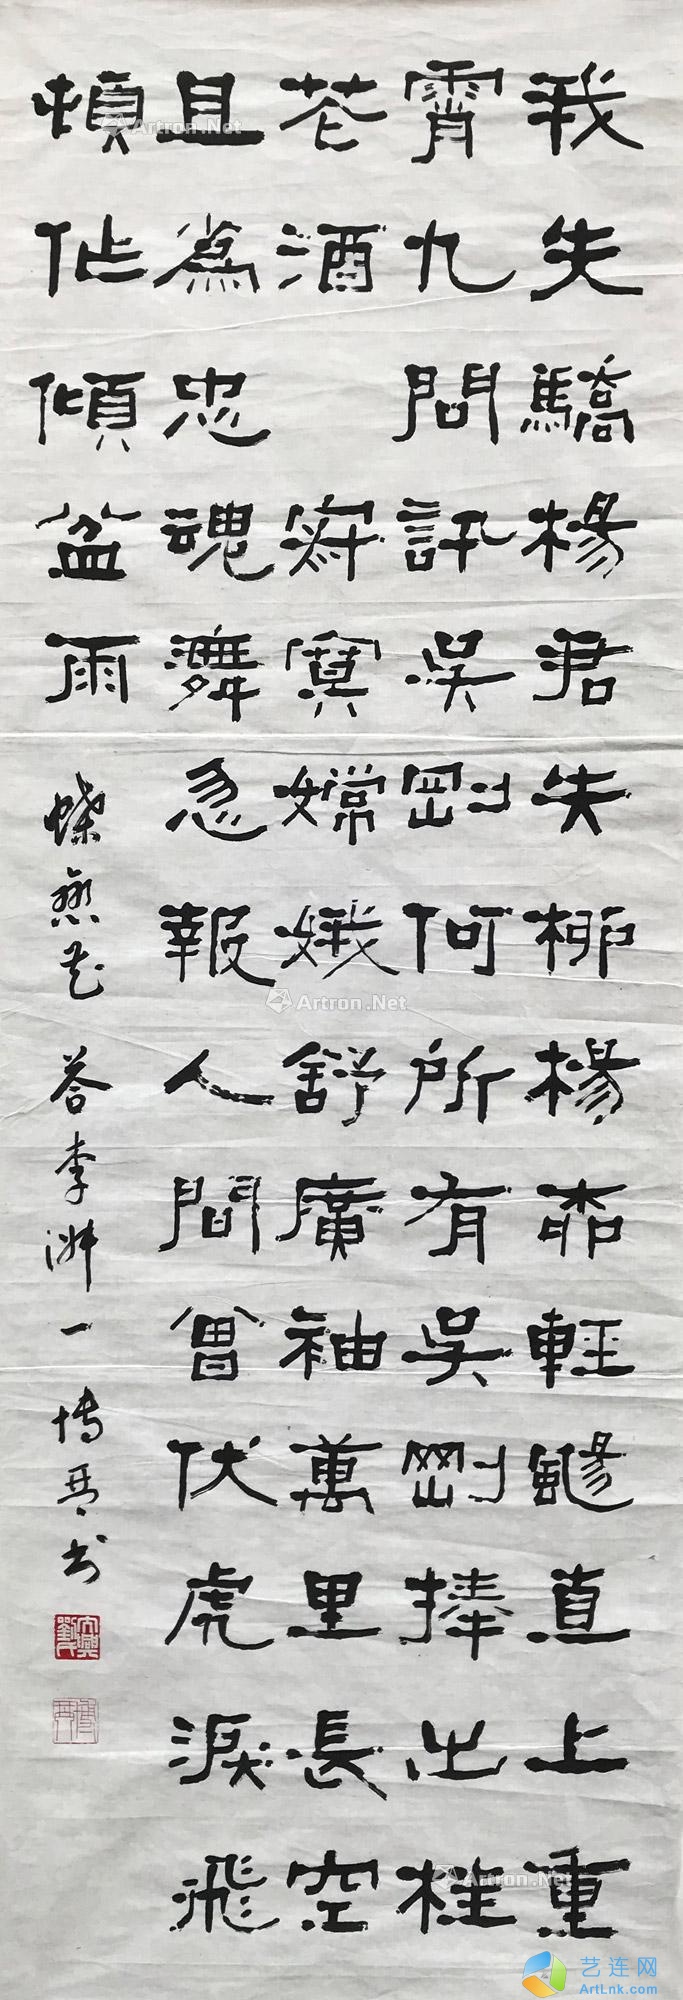 我失驕楊君失柳楊柳輕颺直上重
霄九問訊吳剛何所有吳剛捧出桂
花酒 寂寞嫦娥舒廣袖萬里長空
且為忠魂舞忽報人間曾伏虎淚飛
頓作傾盆雨
蝶戀花 答李淑一 博琴书
大興劉氏
博琴
Artron.Net
Artron.Net
Artron.Net
艺连网
ArtLnk.com